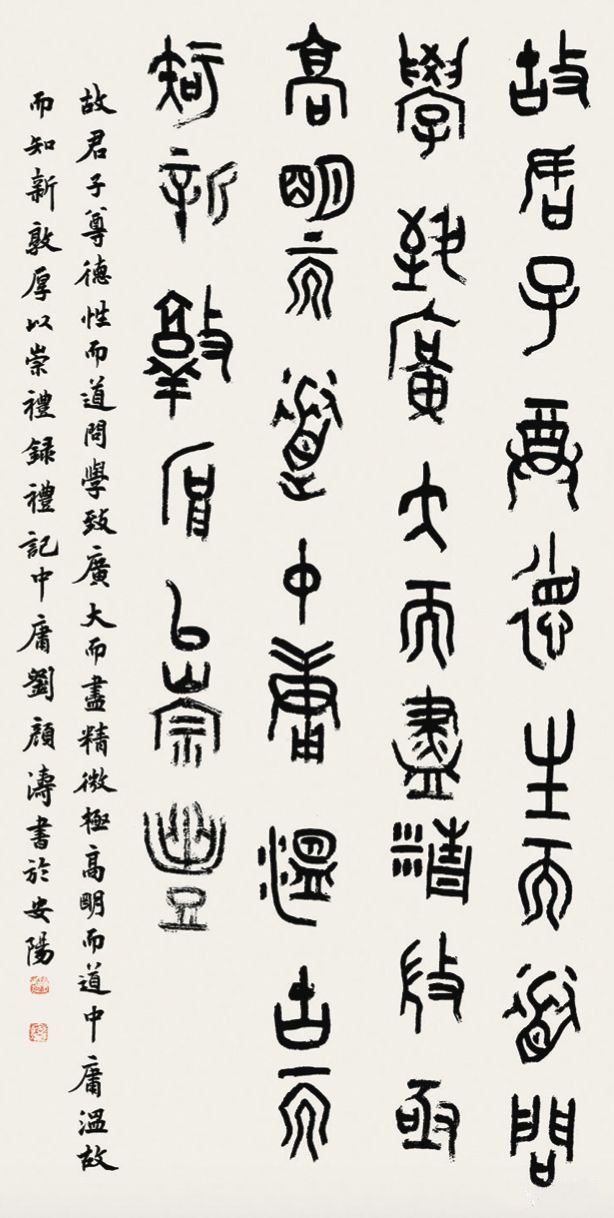 故君子尊德性而道問
學致廣大而盡精微極
高明而道中庸溫故而
知新敦厚以崇禮
故君子尊德性而道問學致廣大而盡精微極高明而道中庸溫故
而知新敦厚以崇禮録禮記中庸劉顏濤書於安陽